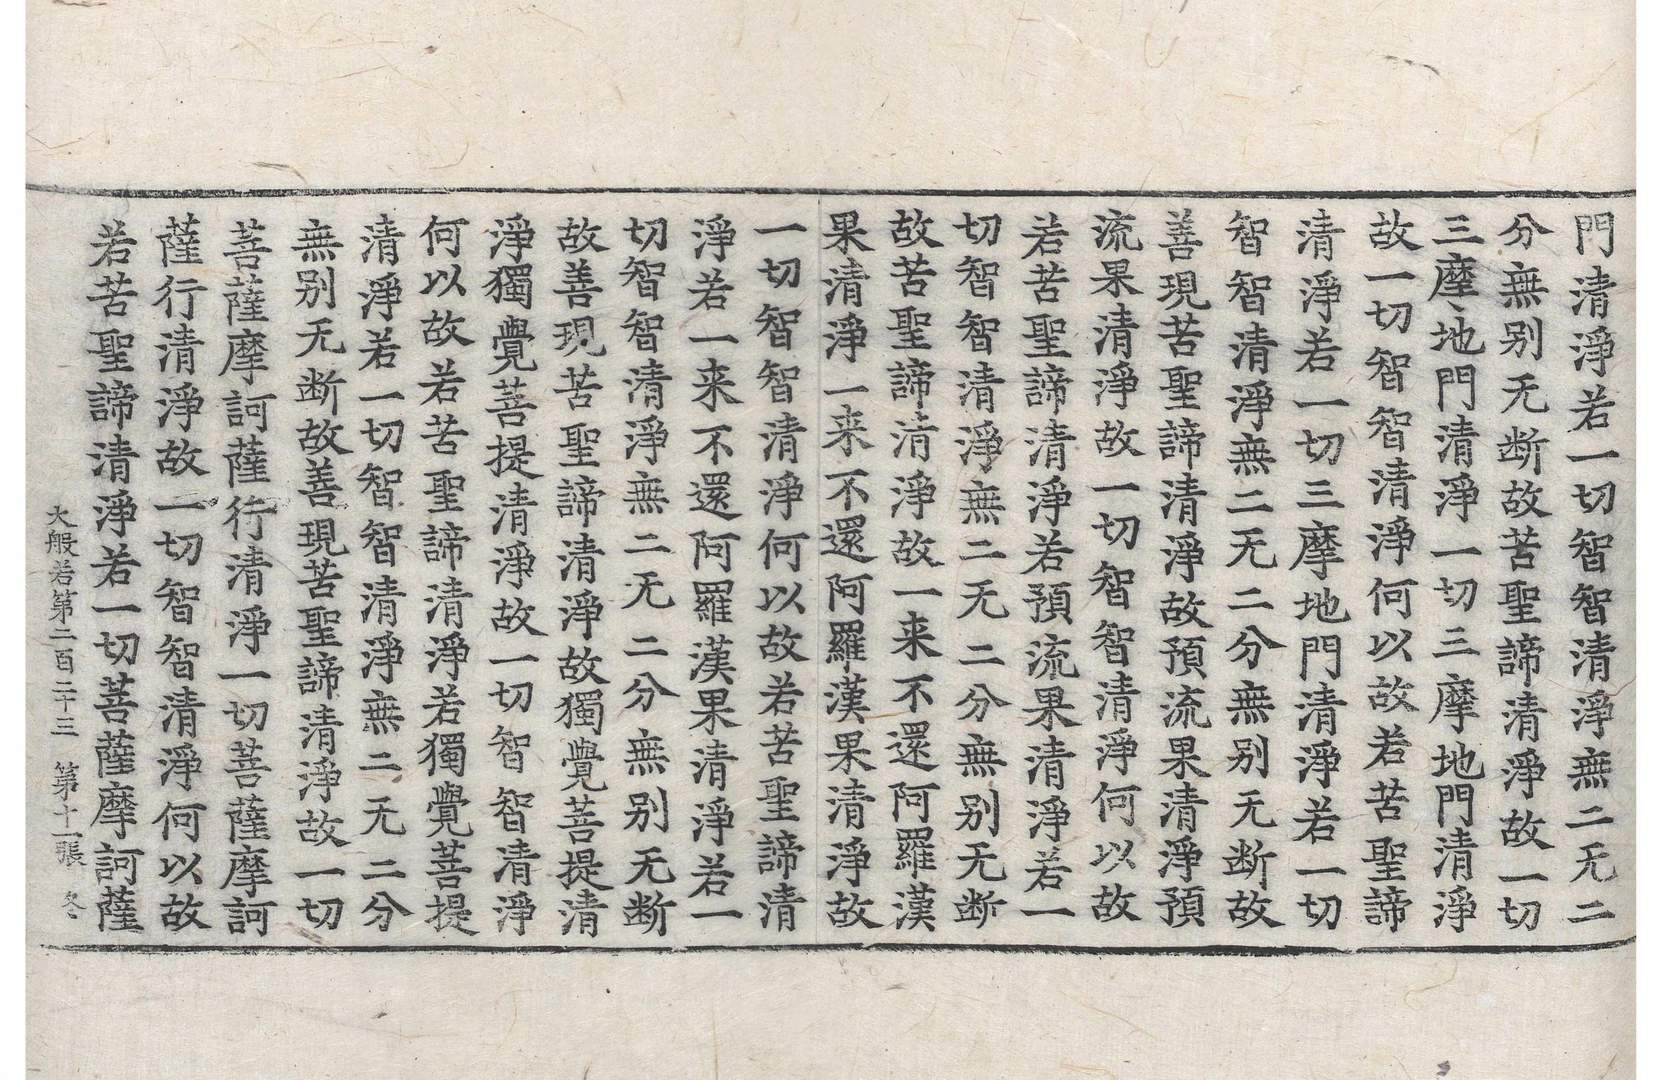 門清淨若一切智智清淨無二无二
分無别无断故苦聖諦清淨故一切
三摩地門清淨一切三摩地門清淨
故一切智智清淨何以故若苦聖諦
清淨若一切三摩地門清淨若一切
智智清淨無二无二分無别无断故
善現苦聖諦清淨故預流果清淨預
流果清淨故一切智智清淨何以故
若苦聖諦清淨若預流果清淨若一
切智智清淨無二无二分無别无断
故苦聖諦清淨故一来不還阿羅漢
果清淨一来不還阿羅漢果清淨故
一切智智清淨何以故若苦聖諦清
淨若一来不還阿羅漢果清淨若一
切智智清淨無二无二分無别无断
故善現苦聖諦清淨故獨覺菩提清
淨獨覺菩提清淨故一切智智清淨
何以故若苦聖諦清淨若獨覺菩提
清淨若一切智智清淨無二无二分
無别无断故善現苦聖諦清淨故一切
菩薩摩訶薩行清淨一切菩薩摩訶
薩行清淨故一切智智清淨何以故
若苦聖諦清淨若一切菩薩摩訶薩
大般若第二百二十三 第十一張 冬